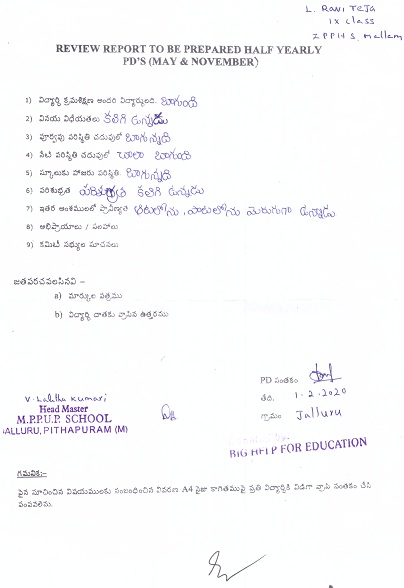 L. Ravi Teja
IX class
ZPPHS, Mallam
REVIEW REPORT TO BE PREPARED HALF YEARLY
PD'S (MAY & NOVEMBER)
1) విద్యార్థి క్రమశిక్షణ అందరి విద్యార్థులది. బాగుంది
2) వినయ విధేయతలు కలిగి ఉన్నాడు
3) పూర్వపు పరిస్థితి చదువులో బాగున్నది
4) నేటి పరిస్థితి చదువులో చాలా బాగుంది
5) స్కూలుకు హాజరు పరిస్థితి. బాగున్నది
6) పరిశుభ్రత పరిశుభ్రత కలిగి ఉన్నాడు
7) ఇతర అంశములలో ప్రావీణ్యత ఆటలోను, పాటలోను మెరుగుగా ఉన్నాడు
8) అభిప్రాయాలు / సలహాలు
9) కమిటీ సభ్యుల సూచనలు
జతపరచవలసినవి –
a) మార్కుల పత్రము
b) విద్యార్థి దాతకు వ్రాసిన ఉత్తరము
PD సంతకం
V. Lalitha Kumari
తేది. 1-2-2020
Head Master
M.P.P.U.P. SCHOOL
గ్రామం Jalluru
JALLURU, PITHAPURAM (M)
BIG HELP FOR EDUCATION
గమనిక:-
పైన సూచించిన విషయములకు సంబంధించిన వివరణ A4 సైజు కాగితముపై ప్రతి విద్యార్థికి విడిగా వ్రాసి సంతకం చేసి
పంపవలెను.